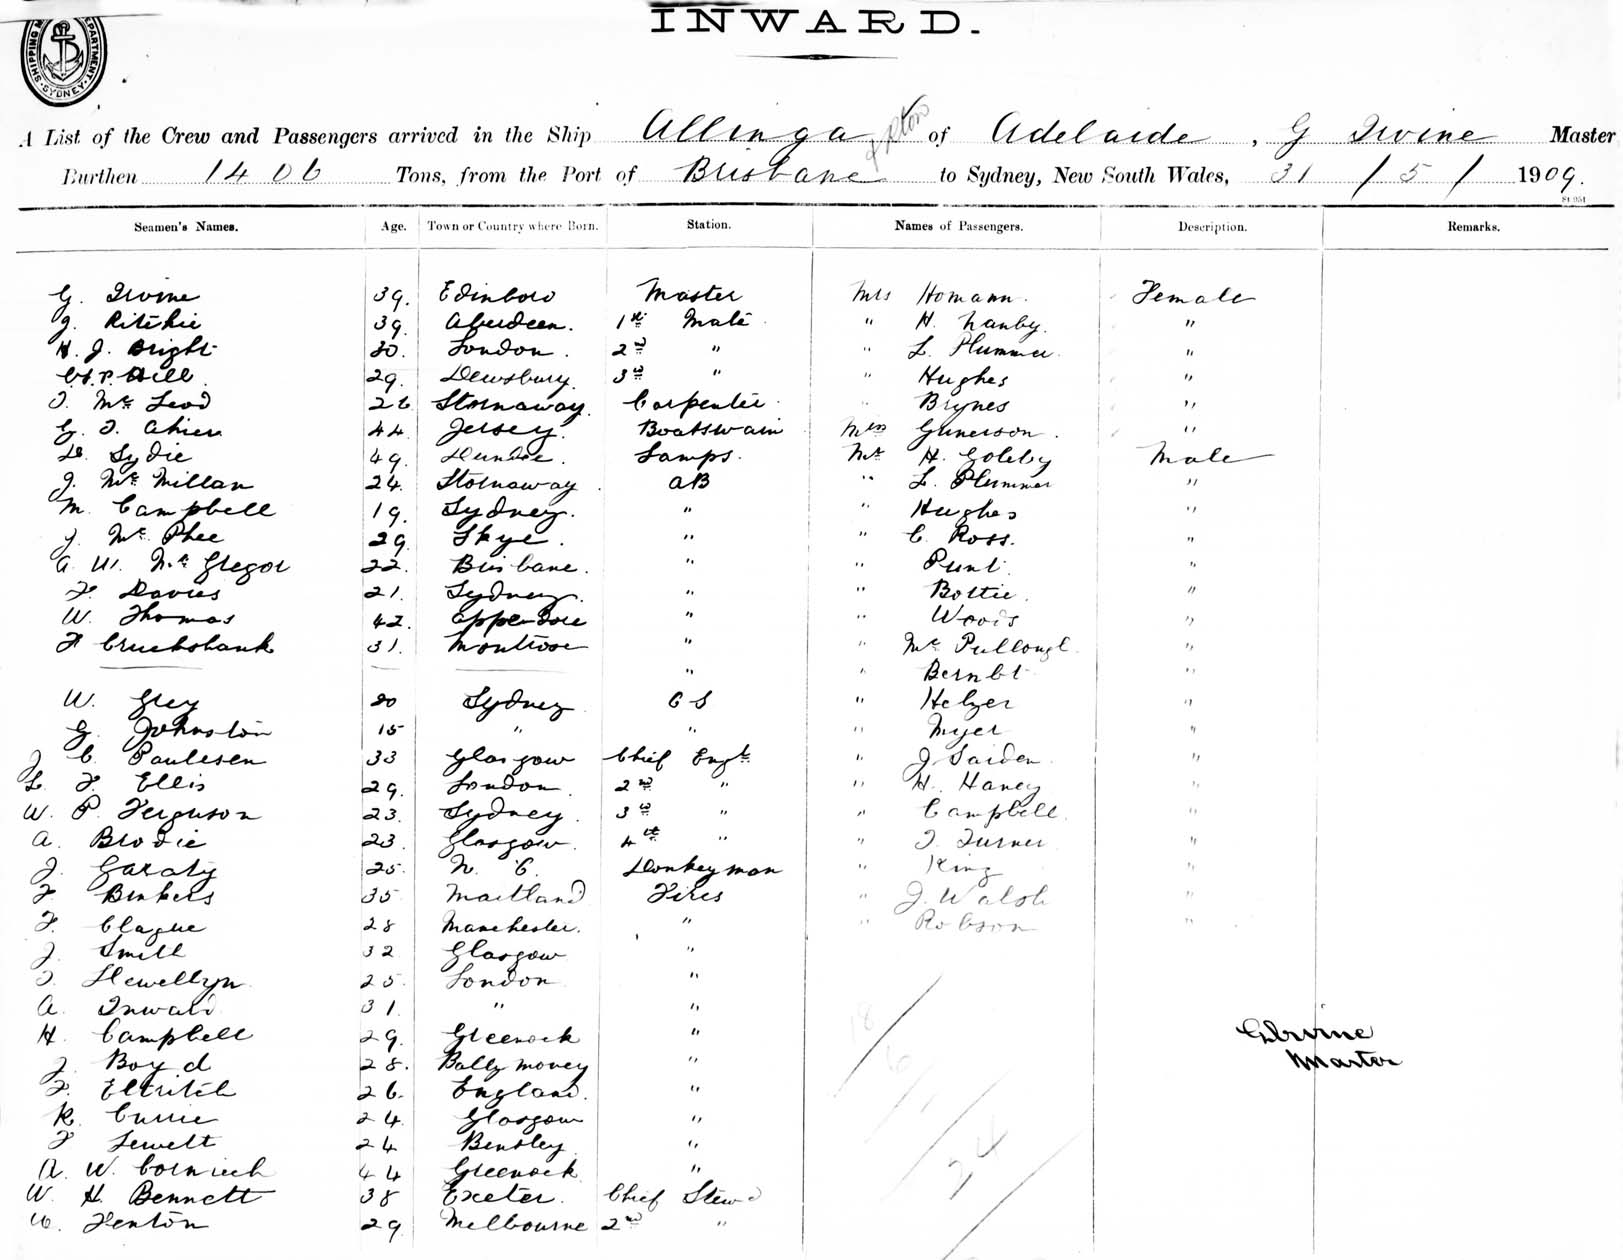 INWARD.
SHIPPING SYDNEY
A List of the Crew and Passengers arrived in the Ship Allinga of Adelaide, G Irvine Master
Burthen 1406 Tons, from the Port of Brisbane to Sydney, New South Wales, 31 / 5 / 1909.
Seamen's Names. Age. Town or Country where Born. Station. Names of Passengers. Description. Remarks.
G. Irvine 39. Edinboro Master Mrs Homann. Female
J. Ritchie 39. Aberdeen. 1st Mate " H. Hanby. "
H. J. Bright 30. London. 2nd " " L. Plummer "
W. P. Hill 29. Dewsbury. 3rd " " Hughes "
J. Mc Leod 26 Stornaway. Carpenter " Brynes "
G. J. Ahier 44. Jersey. Boatswain Miss Gunerson. "
D. Lydie 49. Dundee. Lamps. Mr H. Goleby Male
J. Mc Millan 24. Stornaway AB " L. Plummer "
M. Campbell 19. Sydney. " " Hughes "
J. Mc Phee 29 Skye. " " C. Ross. "
A. W. Mc Gregor 22. Brisbane. " " Punt. "
F. Davies 21. Sydney. " " Bottie. "
W. Thomas 42. Appledore " " Woods "
F Cruckshank 31. Montrose " " Mc Cullough "
" " "
W. Grey 20 Sydney OS " Helzer "
G. Johnston 15 " " " Myer "
J C. Paulesen 33 Glasgow Chief Engr " J Sarden "
L. F. Ellis 29. London. 2nd " " H. Haney "
W. P. Ferguson 23. Sydney. 3rd " " Campbell. "
A. Brodie 23. Glasgow. 4th " " J. Turner "
J. Garaty 25. N. C. Donkeyman " King "
F. Binkers 35 Maitland Fires " J. Walsh "
F. Clague 28 Manchester. " " Robson "
J. Smith 32 Glasgow "
J. Llewellyn 25. London "
A. Inward 31. " "
H. Campbell 29. Greenock "
G Irvine
J. Boyd 28. Ballymoney "
Master
F. Eltritch 26. England. "
R. Currie 24. Glasgow "
F Jewett 24 Bensley "
A. W. Cornish 44 Greenock "
24
W. H. Bennett 38 Exeter. Chief Stewd
W. Fenton 29 Melbourne 2nd "